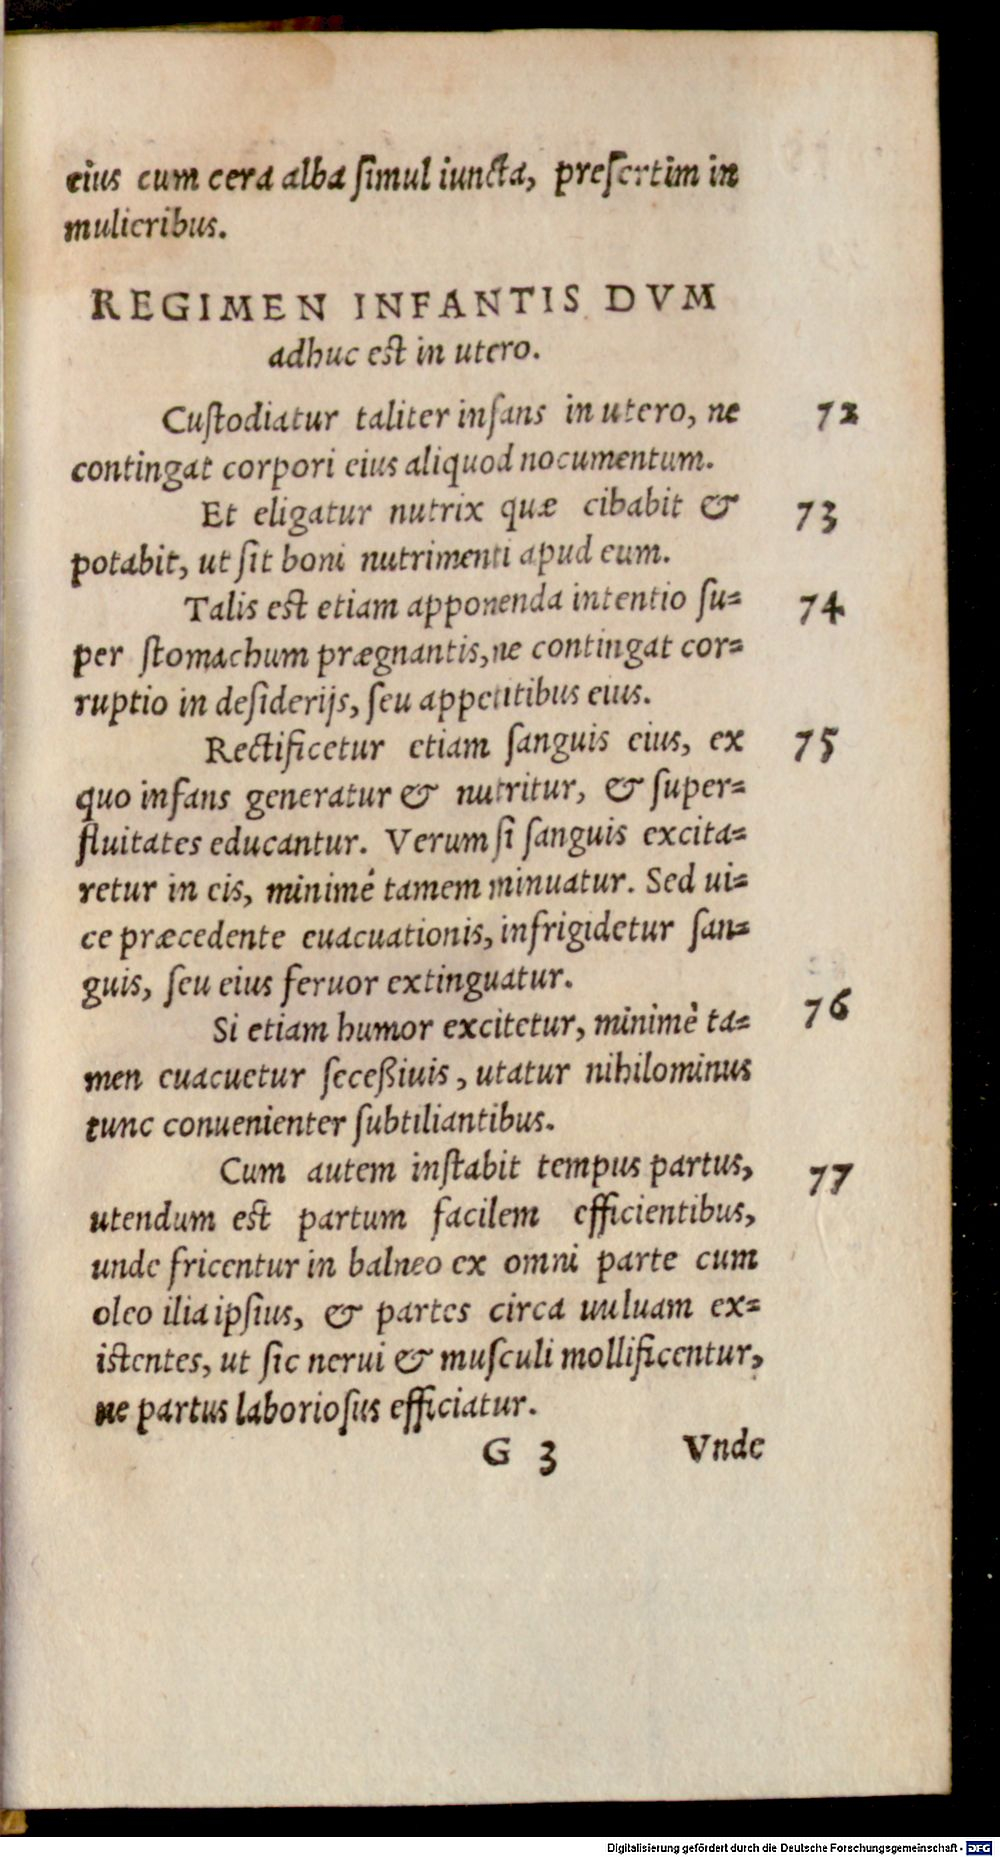 eius cum cera alba ſimul iuncta, preſertim in
mulieribus.
REGIMEN INFANTIS DVM
adhuc est in utero.
Cuſtodiatur taliter infans in utero, ne 72
contingat corpori eius aliquod nocumentum.
Et eligatur nutrix quæ cibabit & 73
potabit, ut ſit boni nutrimenti apud eum.
Talis est etiam apponenda intentio ſu= 74
per ſtomachum prægnantis, ne contingat cor=
ruptio in deſiderijs, ſeu appetitibus eius.
Rectificetur etiam ſanguis eius, ex 75
quo infans generatur & nutritur, & ſuper=
fluitates educantur. Verum ſi ſanguis excita=
retur in eis, minimé tamem minuatur. Sed ui=
ce præcedente euacuationis, infrigidetur ſan=
guis, ſeu eius feruor extinguatur.
Si etiam humor excitetur, minimè ta= 76
men euacuetur ſeceßiuis, utatur nihilominus
tunc conuenienter ſubtiliantibus.
Cum autem inſtabit tempus partus, 77
utendum est partum facilem efficientibus,
unde fricentur in balneo ex omni parte cum
oleo ilia ipſius, & partes circa uuluam ex=
istentes, ut ſic nerui & muſculi mollificentur,
ne partus laborioſus efficiatur.
G 3 Vnde
Digitalisierung gefördert durch die Deutsche Forschungsgemeinschaft - DFG